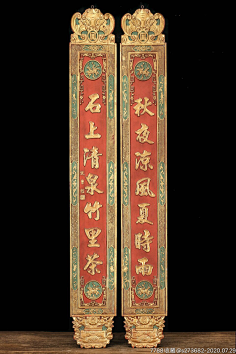 秋夜凉风夏時雨
石上清泉竹里茶
7788收藏@z273682-2020.07.29